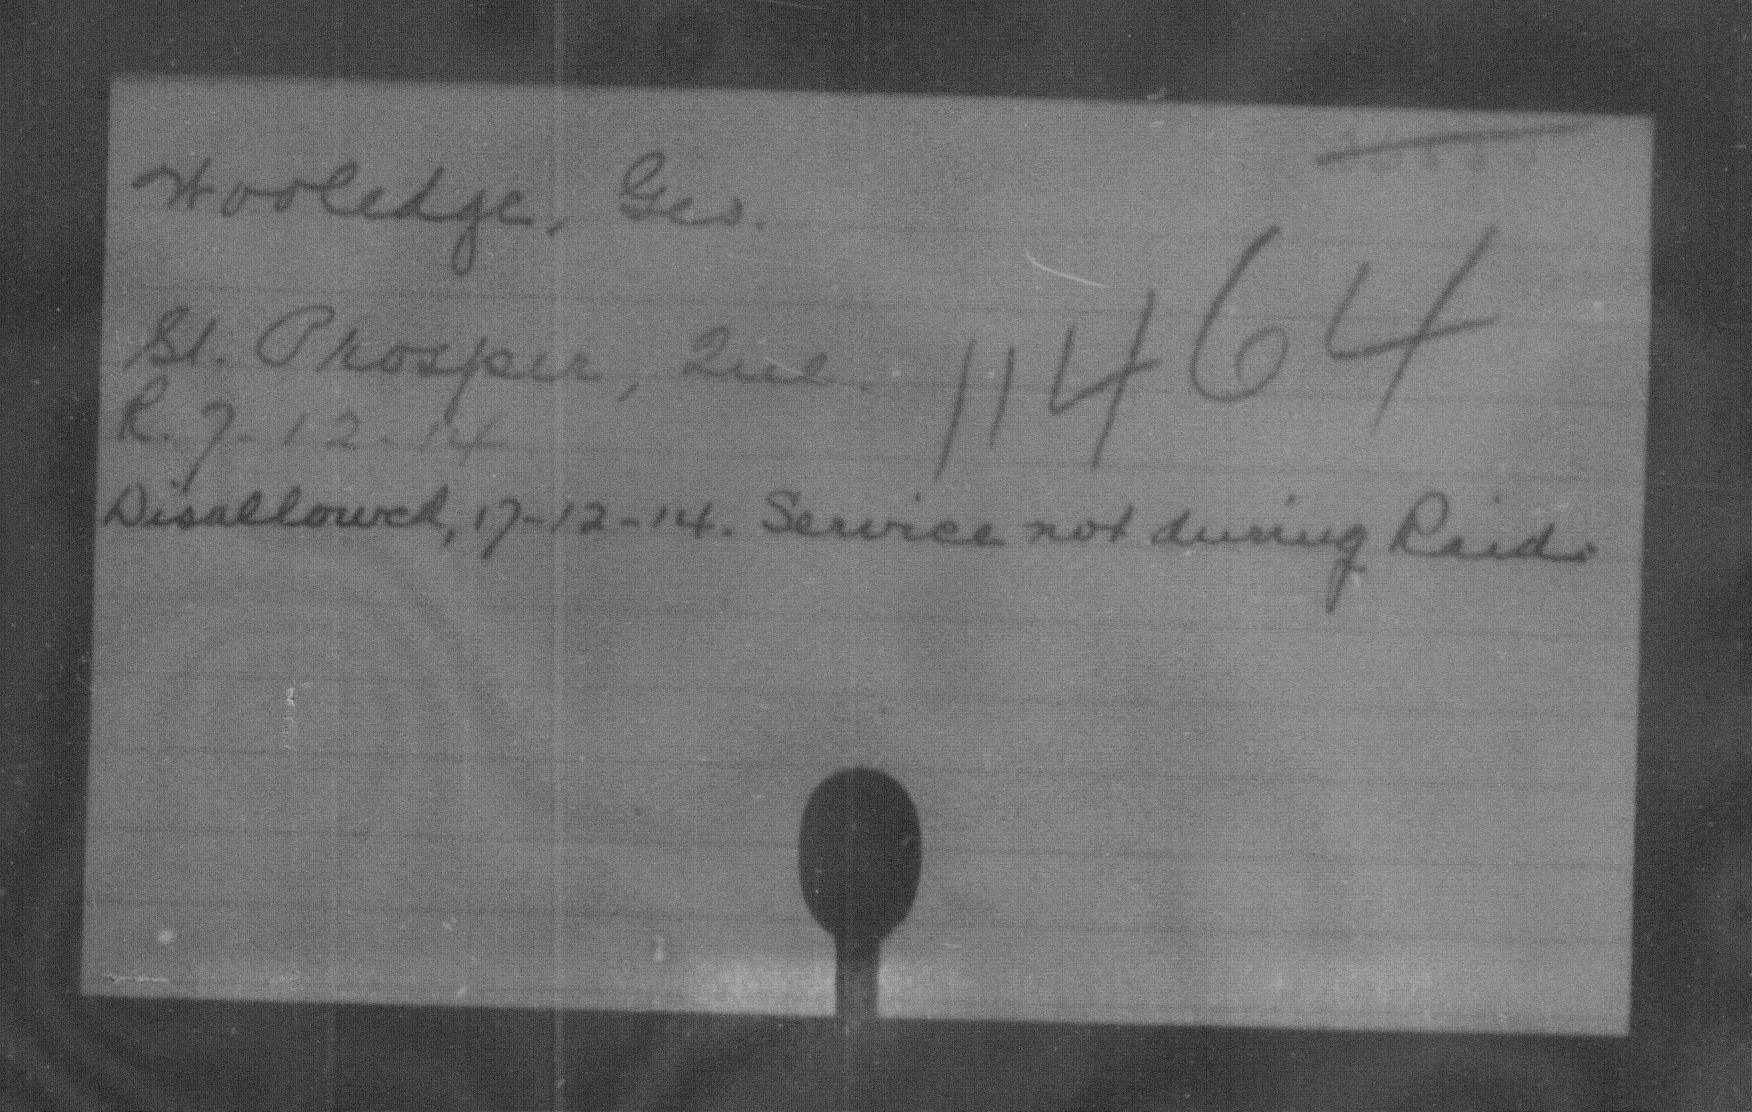 Wooledge, Geo.
St. Prosper, Que.
11464
R. 7-12-14
Disallowed, 17-12-14. Service not during Raid.